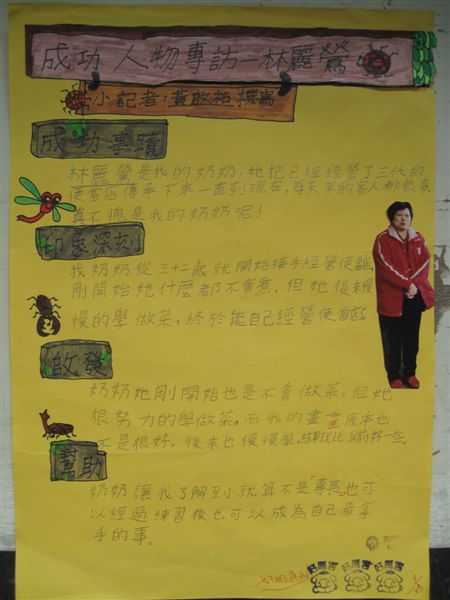 成功人物專訪—林麗鶯
小記者:黃啟祐撰寫
成功事蹟
林麗鶯是我的奶奶,她把已經經營了三代的
便當店傳承下來一直到現在,每天來的客人都很多,
真不愧是我的奶奶呢!
印象深刻
我奶奶從三十二歲就開始接手經營便當店,
剛開始她什麼都不會煮,但她後來慢
慢的學做菜,終於能自己經營便當店
啟發
奶奶她剛開始也是不會做菜,但她
很努力的學做菜。而我的畫畫原本也
不是很好,後來也慢慢學,結果就比以前好一些。
幫助
奶奶讓我了解到就算不是「專長」也可
以經過練習後也可以成為自己最拿
手的事。
好厲害 好厲害 好厲害